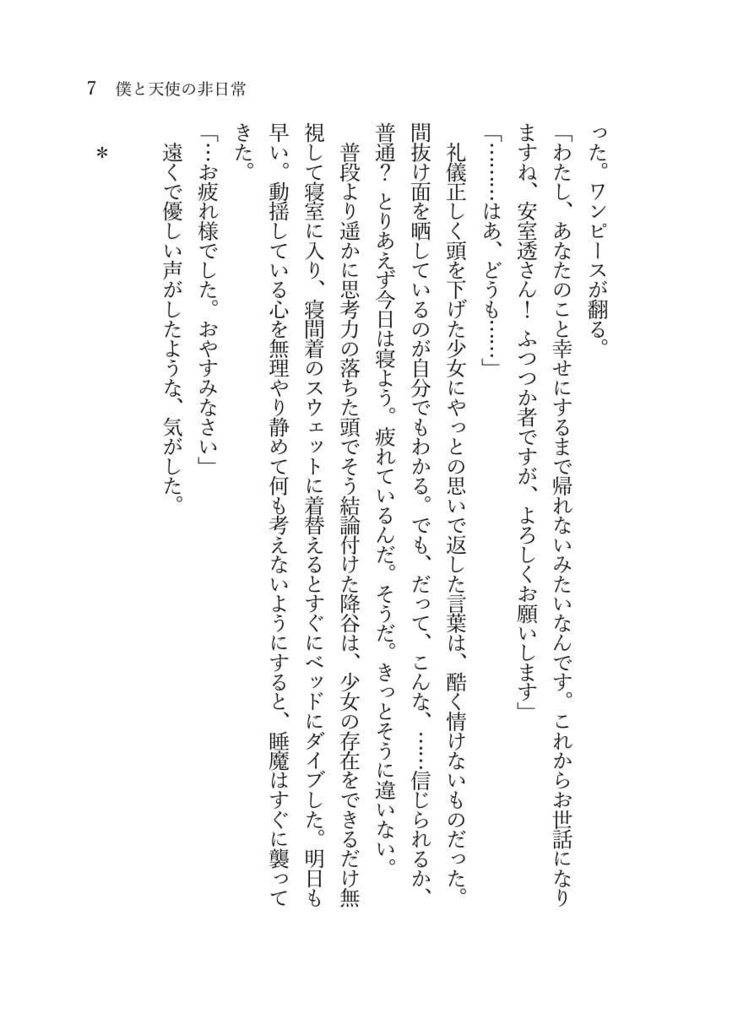 7 僕と天使の非日常
った。ワンピースが翻る。
「わたし、あなたのこと幸せにするまで帰れないみたいなんです。これからお世話になり
ますね、安室透さん！ ふつつか者ですが、よろしくお願いします」
「………はあ、どうも……」
礼儀正しく頭を下げた少女にやっとの思いで返した言葉は、酷く情けないものだった。
間抜け面を晒しているのが自分でもわかる。でも、だって、こんな、……信じられるか、
普通？ とりあえず今日は寝よう。疲れているんだ。そうだ。きっとそうに違いない。
普段より遥かに思考力の落ちた頭でそう結論付けた降谷は、少女の存在をできるだけ無
視して寝室に入り、寝間着のスウェットに着替えるとすぐにベッドにダイブした。明日も
早い。動揺している心を無理やり静めて何も考えないようにすると、睡魔はすぐに襲って
きた。
「…お疲れ様でした。おやすみなさい」
遠くで優しい声がしたような、気がした。
＊